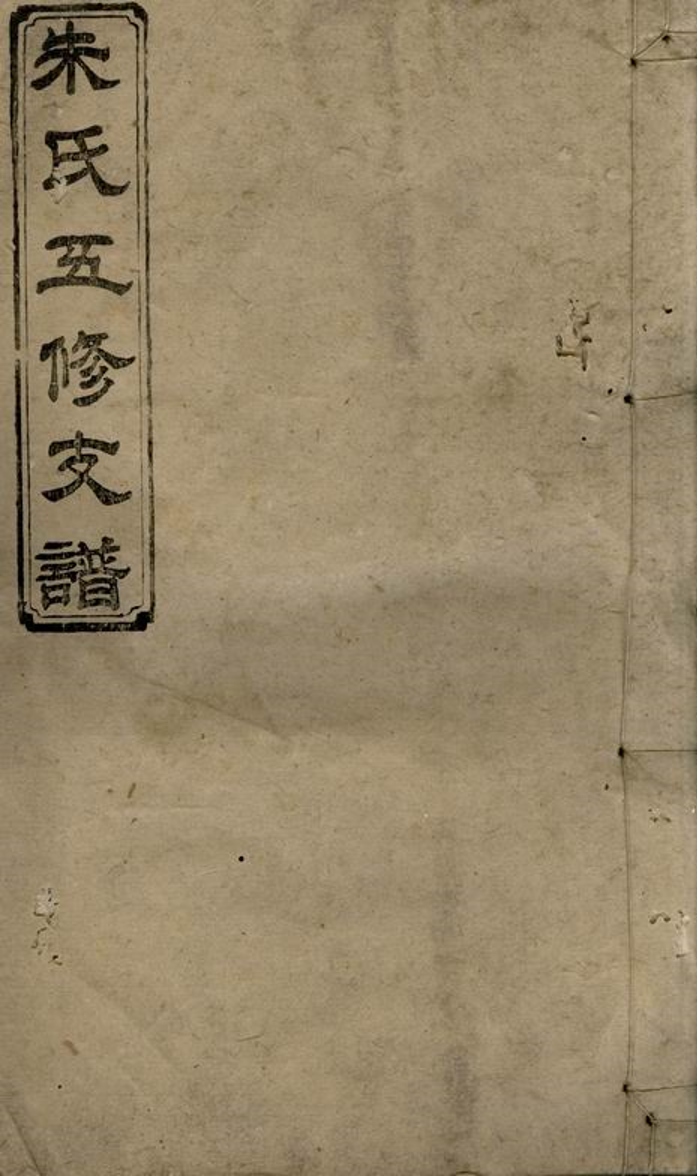 朱氏五修支譜